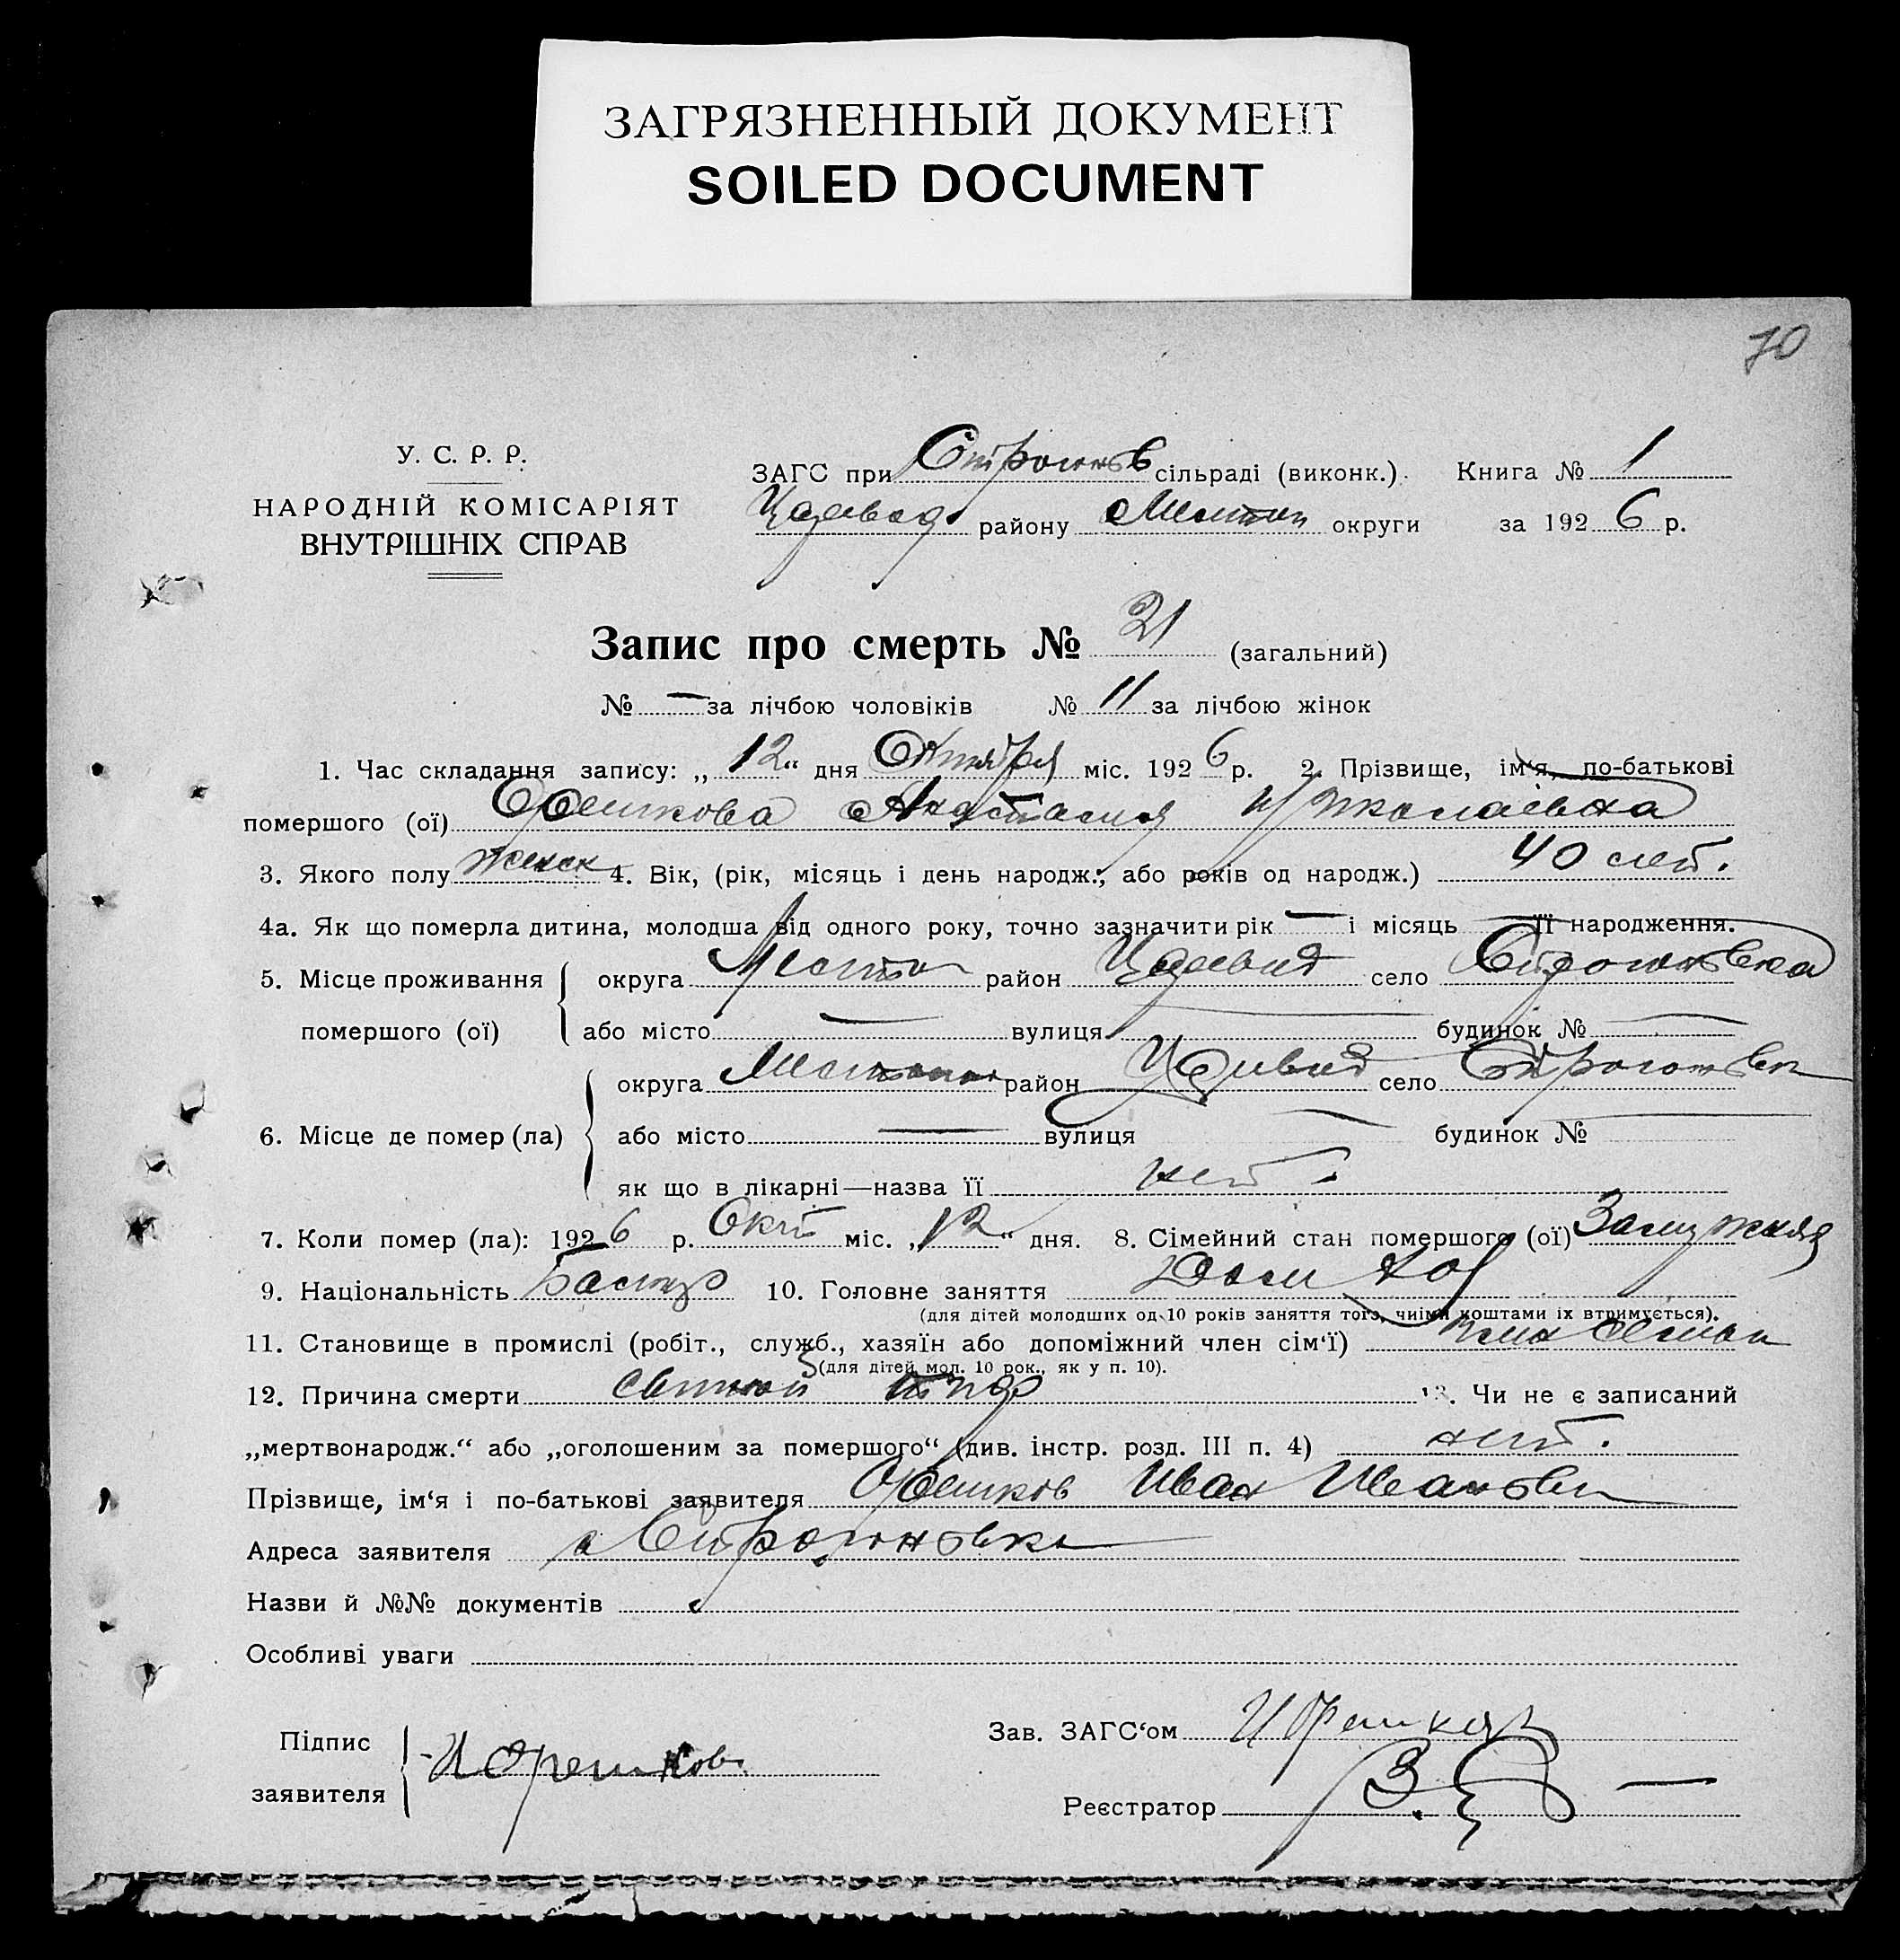 ЗАГРЯЗНЕННЫЙ ДОКУМЕНТ
SOILED DOCUMENT
70
У. С. Р. Р.
НАРОДНІЙ КОМІСАРІЯТ
ВНУТРІШНІХ СПРАВ
ЗАГС при Строганов сільраді (виконк.). Книга № 1
району Мелитоп округи за 1926 р.
Запис про смерть № 21 (загальний)
№ — за лічбою чоловіків № 11 за лічбою жінок
1. Час складання запису: „12“ дня Октября міс. 1926 р. 2. Прізвище, ім‘я, по-батькові
помершого (ої) Орешкова Анастасия Николаевна
3. Якого полу женск 4. Вік, (рік, місяць і день народж., або років од народж.) 40 лет.
4а. Як що померла дитина, молодша від одного року, точно зазначити рік — і місяць — її народження.
5. Місце проживання округа Мелитоп район село Строгановка
помершого (ої) або місто — вулиця — будинок № —
округа Мелитопол район село Строгановк
6. Місце де помер (ла) або місто — вулиця — будинок № —
як що в лікарні—назва її нет.
7. Коли помер (ла): 1926 р. Окт міс. „12“ дня. 8. Сімейний стан помершого (ої) Замужняя
9. Національність Болгар 10. Головне заняття Дом хоз
(для дітей молодших од 10 років заняття того, чиїми коштами їх втримується).
11. Становище в промислі (робіт., служб., хазяїн або допоміжний член сім‘ї) член семьи
(для дітей мол. 10 рок., як у п. 10).
12. Причина смерти 13. Чи не є записаний
„мертвонародж.“ або „оголошеним за помершого“ (див. інстр. розд. III п. 4) нет.
Прізвище, ім‘я і по-батькові заявителя Орешков Иван Иванович
Адреса заявителя с Строгановка
Назви й №№ документів
Особливі уваги
Підпис
заявителя И Орешков
Зав. ЗАГС‘ом И Орешков
Реєстратор